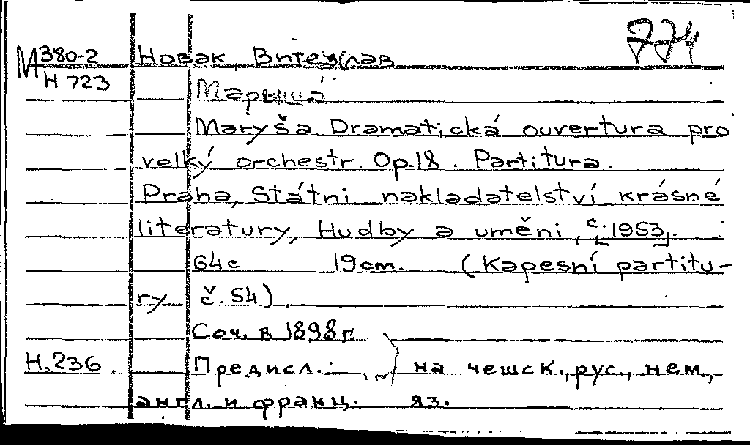 774
М 380-2 Новак, Витезслав
Н 723
Марыша
Maryša. Dramatická ouvertura pro
velký orchestr. Op.18. Partitura.
Praha, Státni nakladatelství krásné
literatury, Hudby a uměni, [č. 1953].
64с 19cm. (Kapesní partitu-
ry č. 54)
Соч. в 1898г.
Н.236. Предисл.: на чешск., рус., нем.,
англ. и франц. яз.